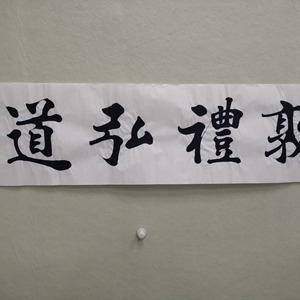 敦禮弘道